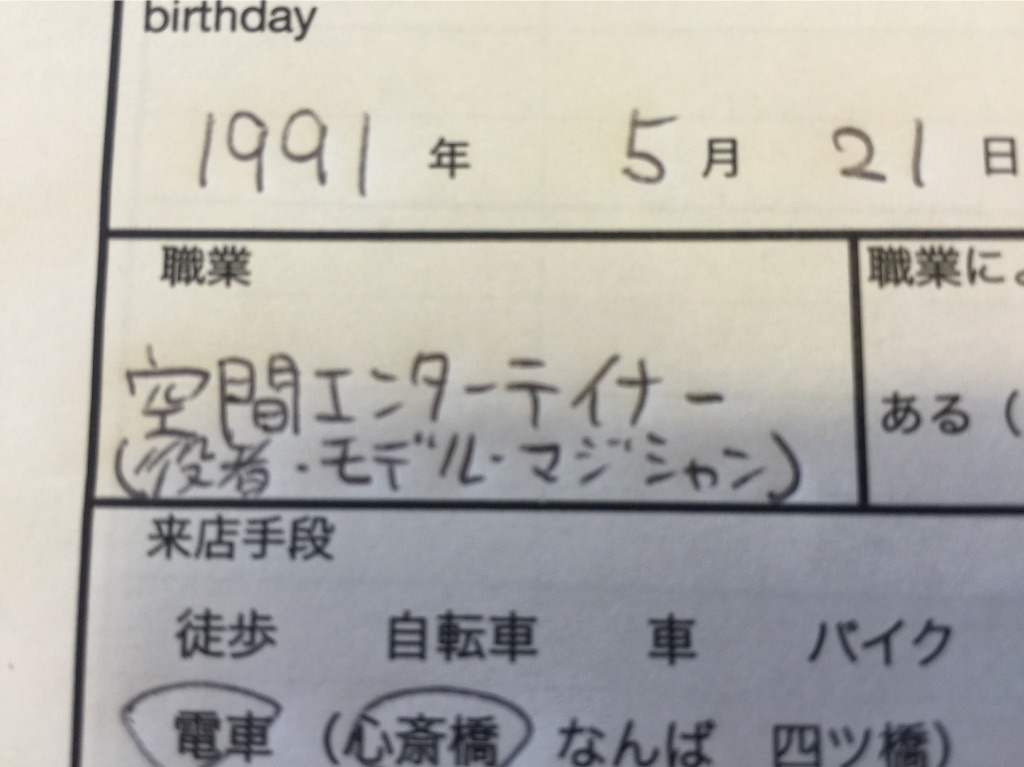 birthday
1991 年 5 月 21 日
職業
職業に
空間エンターテイナー
(役者・モデル・マジシャン)
ある (
来店手段
徒歩 自転車 車 バイク
電車 (心斎橋 なんば 四ツ橋)